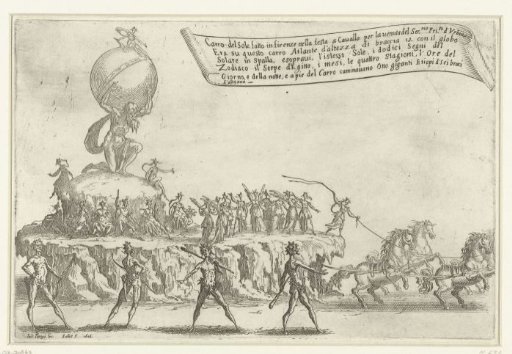 Carro del Sole fatto in firenze nella festa a Cavallo per la venuta del Ser.mo Pri.pe d'Urbino
Era su questo carro Atlante d'altezza di braccia 12 con il globo
Solare in spalla, e sopra ui l'istesso Sole, i dodici Segni del
Zodiaco il Serpe d'Egitto, i mesi, le quattro Stagioni, l'Ore del
Giorno, e della notte, e a pie del Carro camminauano Otto giganti Etiopi d'sei bracci
l'uno
Iul. Parigi In.